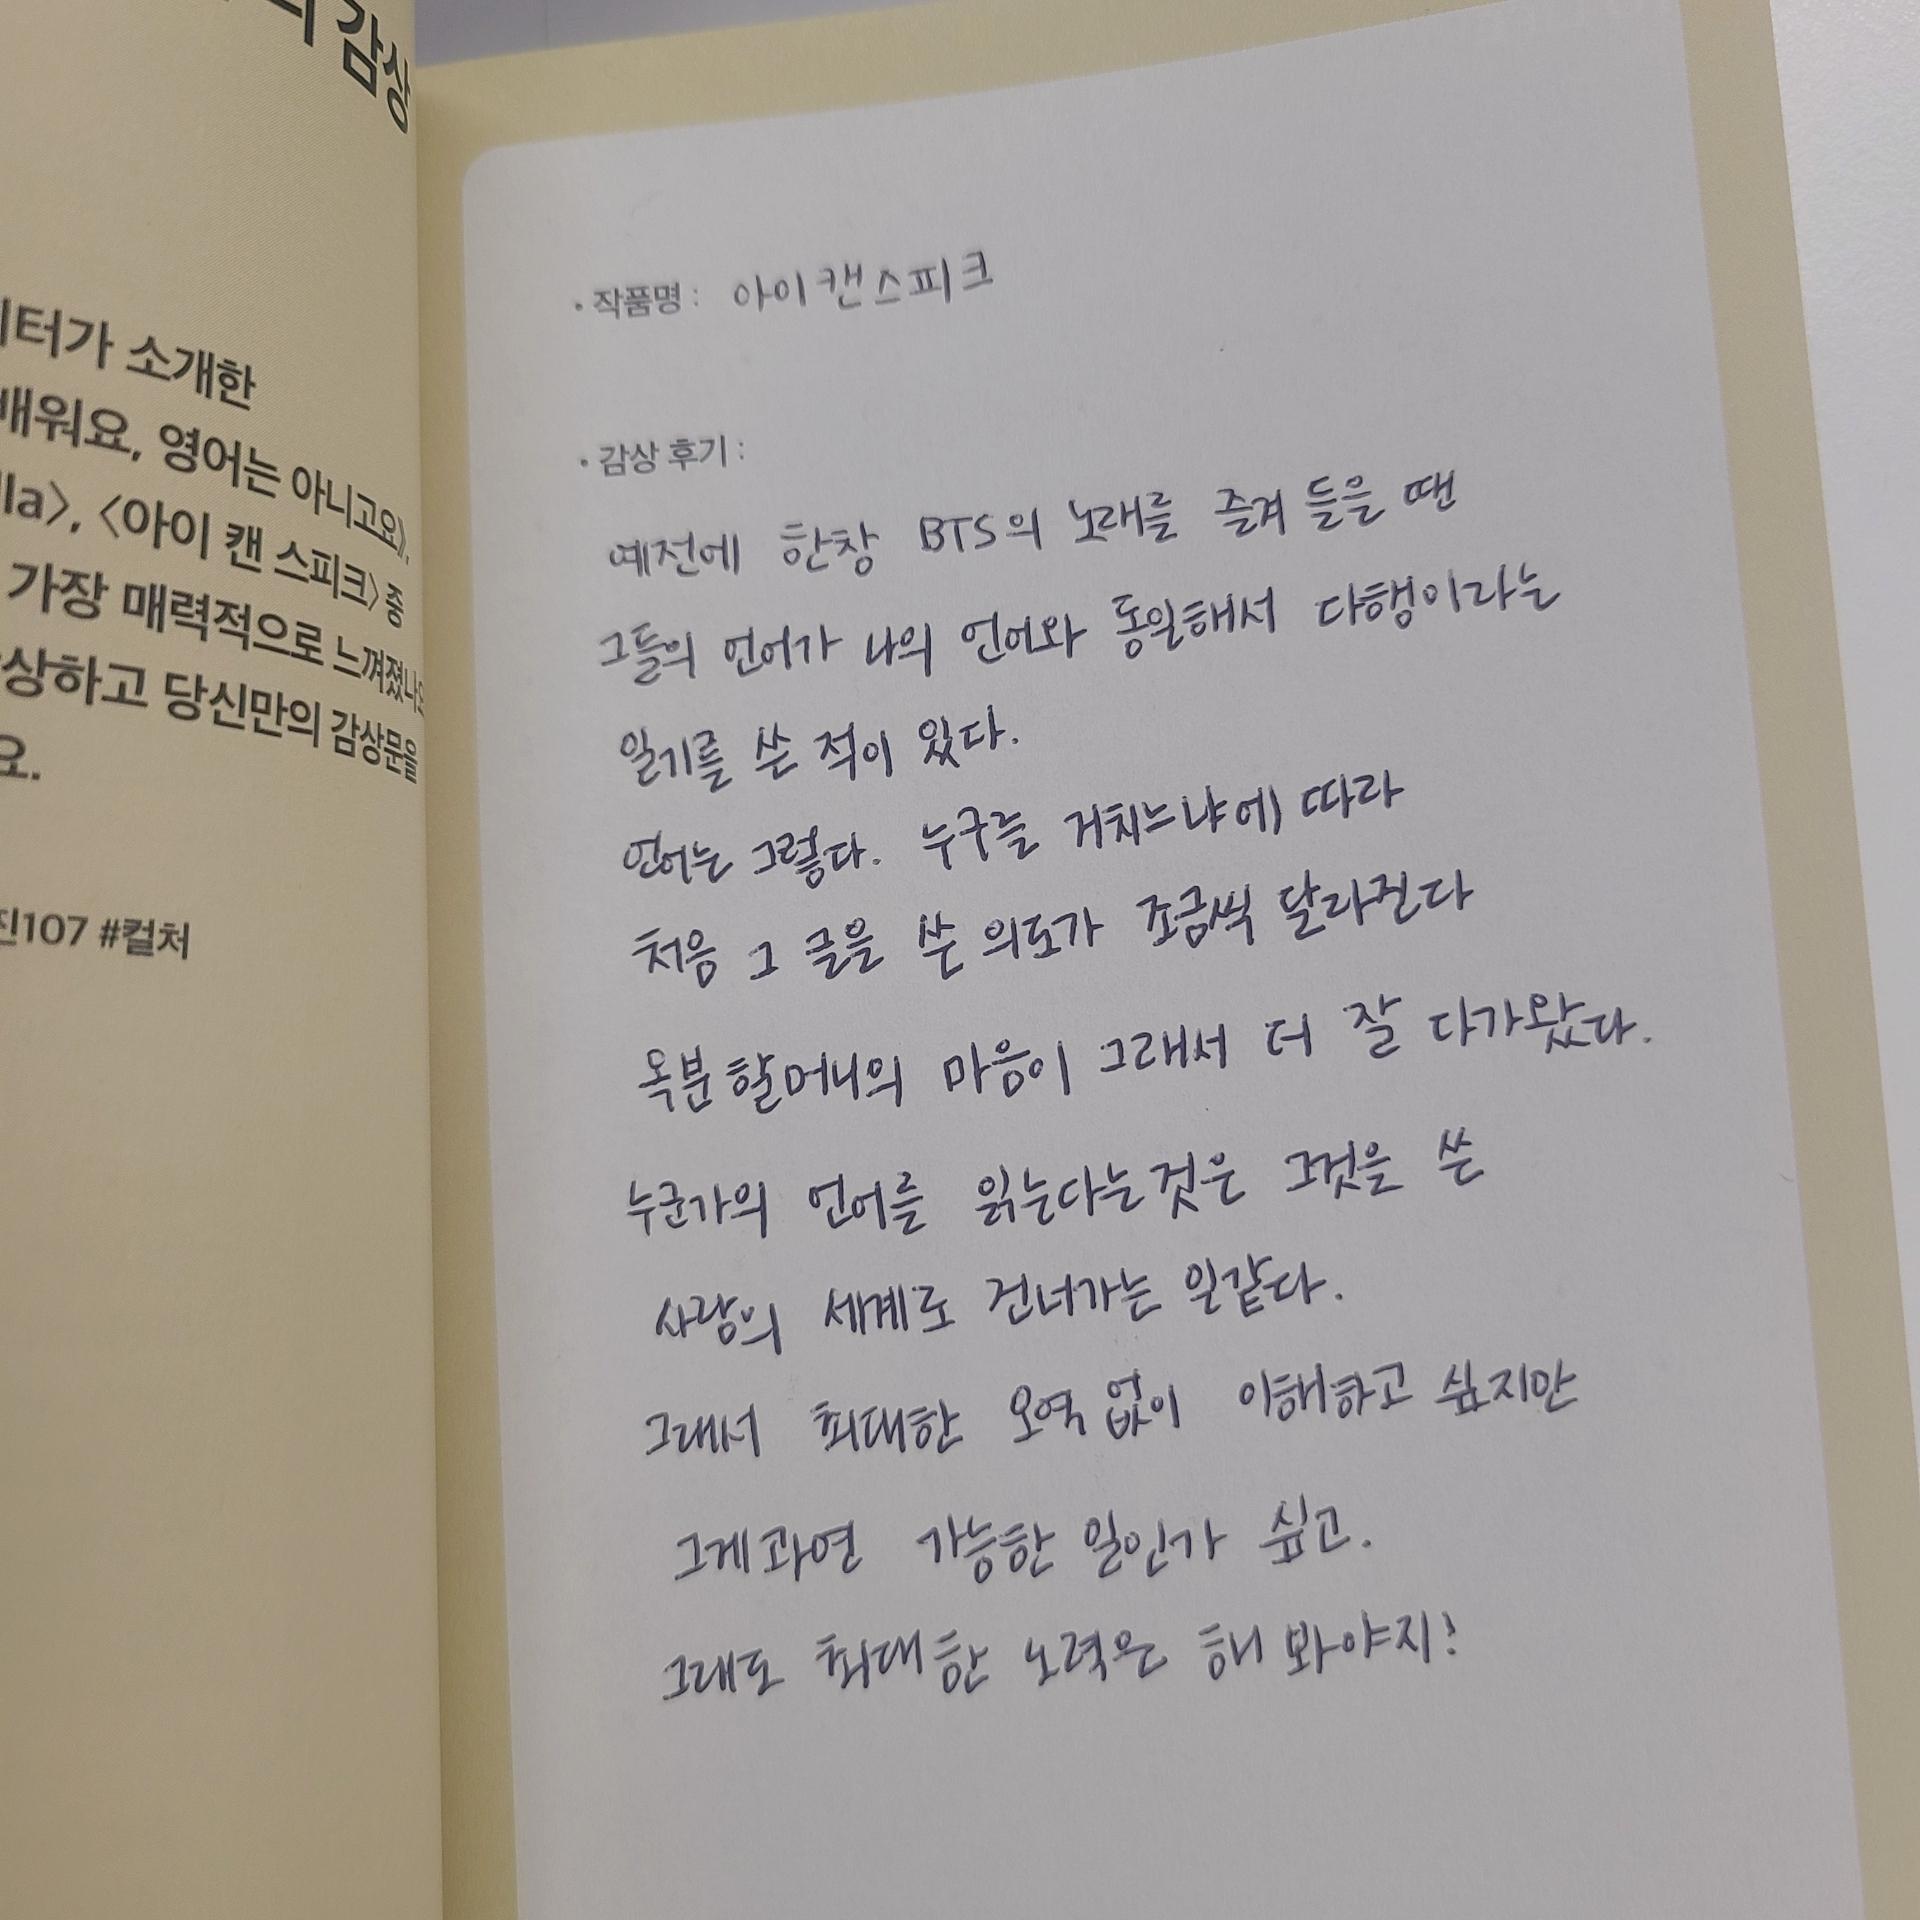 감상
터가 소개한
배워요, 영어는 아니고요》,
lla〉, 〈아이 캔 스피크〉 중
가장 매력적으로 느껴졌나요
상하고 당신만의 감상문을
요.
진107 #컬처
• 작품명 : 아이 캔 스피크
• 감상 후기 :
예전에 한창 BTS의 노래를 즐겨 들을 땐
그들의 언어가 나의 언어와 동일해서 다행이라는
일기를 쓴 적이 있다.
언어는 그렇다. 누구를 거치느냐에 따라
처음 그 글을 쓴 의도가 조금씩 달라진다
옥분 할머니의 마음이 그래서 더 잘 다가왔다.
누군가의 언어를 읽는다는 것은 그것을 쓴
사람의 세계로 건너가는 일같다.
그래서 최대한 오역 없이 이해하고 싶지만
그게 과연 가능한 일인가 싶고.
그래도 최대한 노력은 해 봐야지!